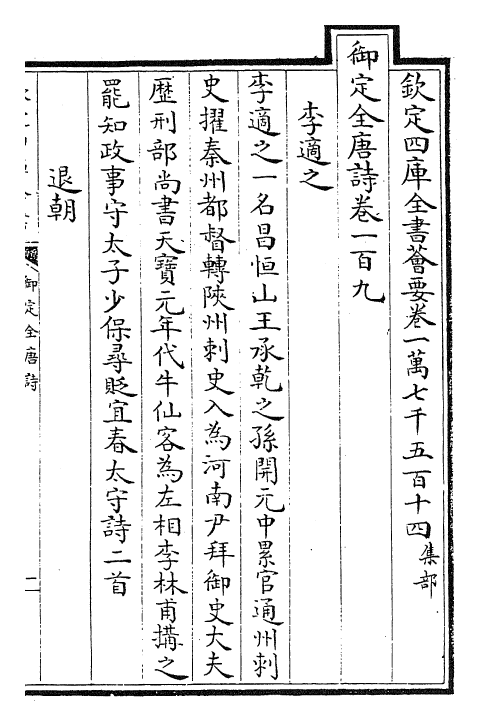 欽定四庫全書薈要卷一萬七千五百十四集部
御定全唐詩卷一百九
李適之
李適之一名昌恒山王承乾之孫開元中累官通州刺
史擢秦州都督轉陜州刺史入為河南尹拜御史大夫
歷刑部尚書天寶元年代牛仙客為左相李林甫搆之
罷知政事守太子少保尋貶宜春太守詩二首
退朝
御定全唐詩